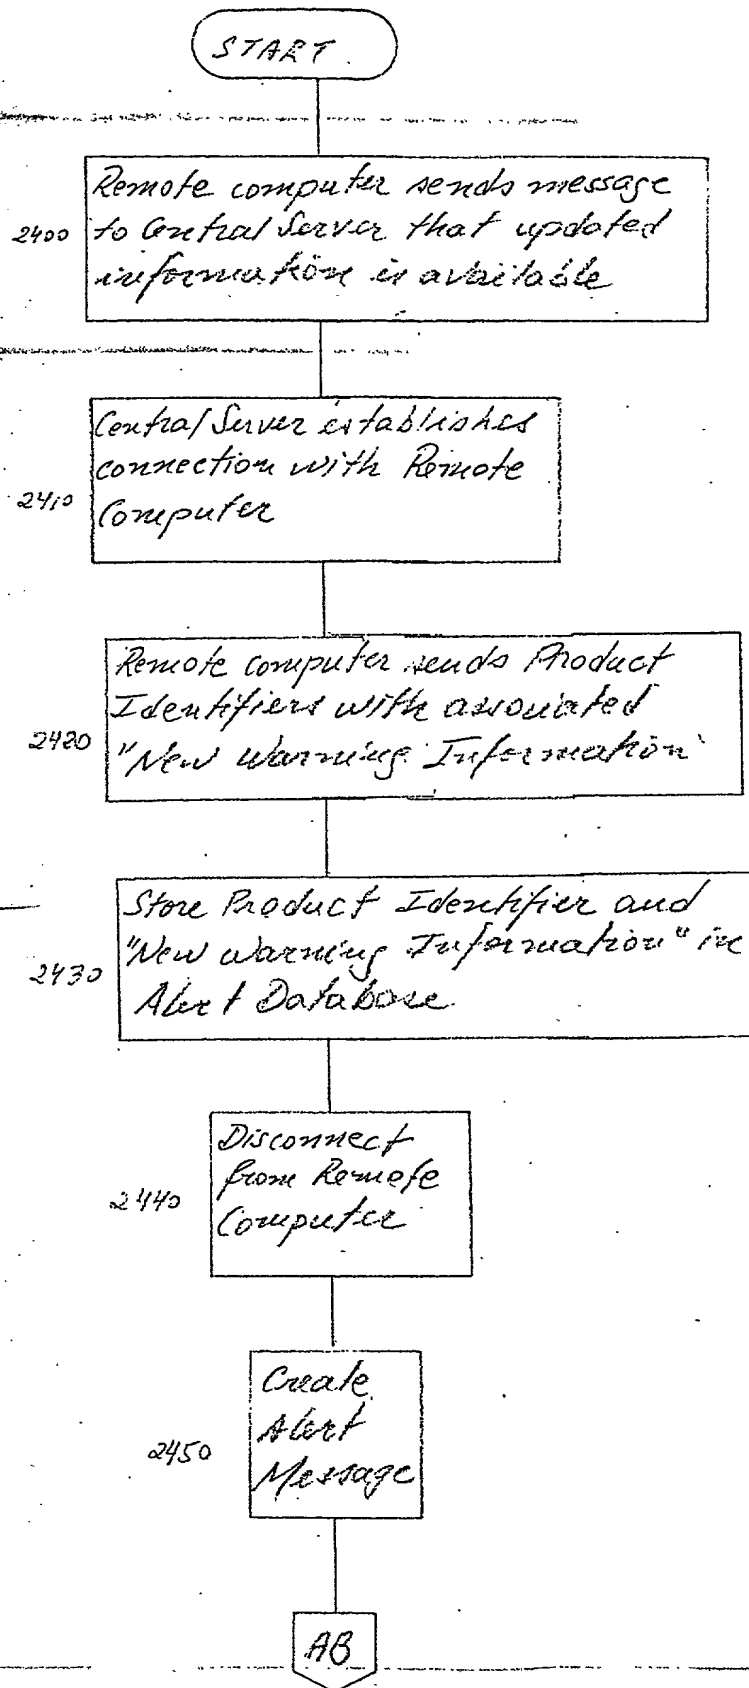 START
Remote computer sends message
2400 to Central Server that updated
information is available
Central Server establishes
connection with Remote
2410 Computer
Remote computer sends Product
Identifiers with associated
2420 "New Warning Information"
Store Product Identifier and
"New Warning Information" in
2430 Alert Database
Disconnect
from Remote
2440 Computer
Create
Alert
2450 Message
AB